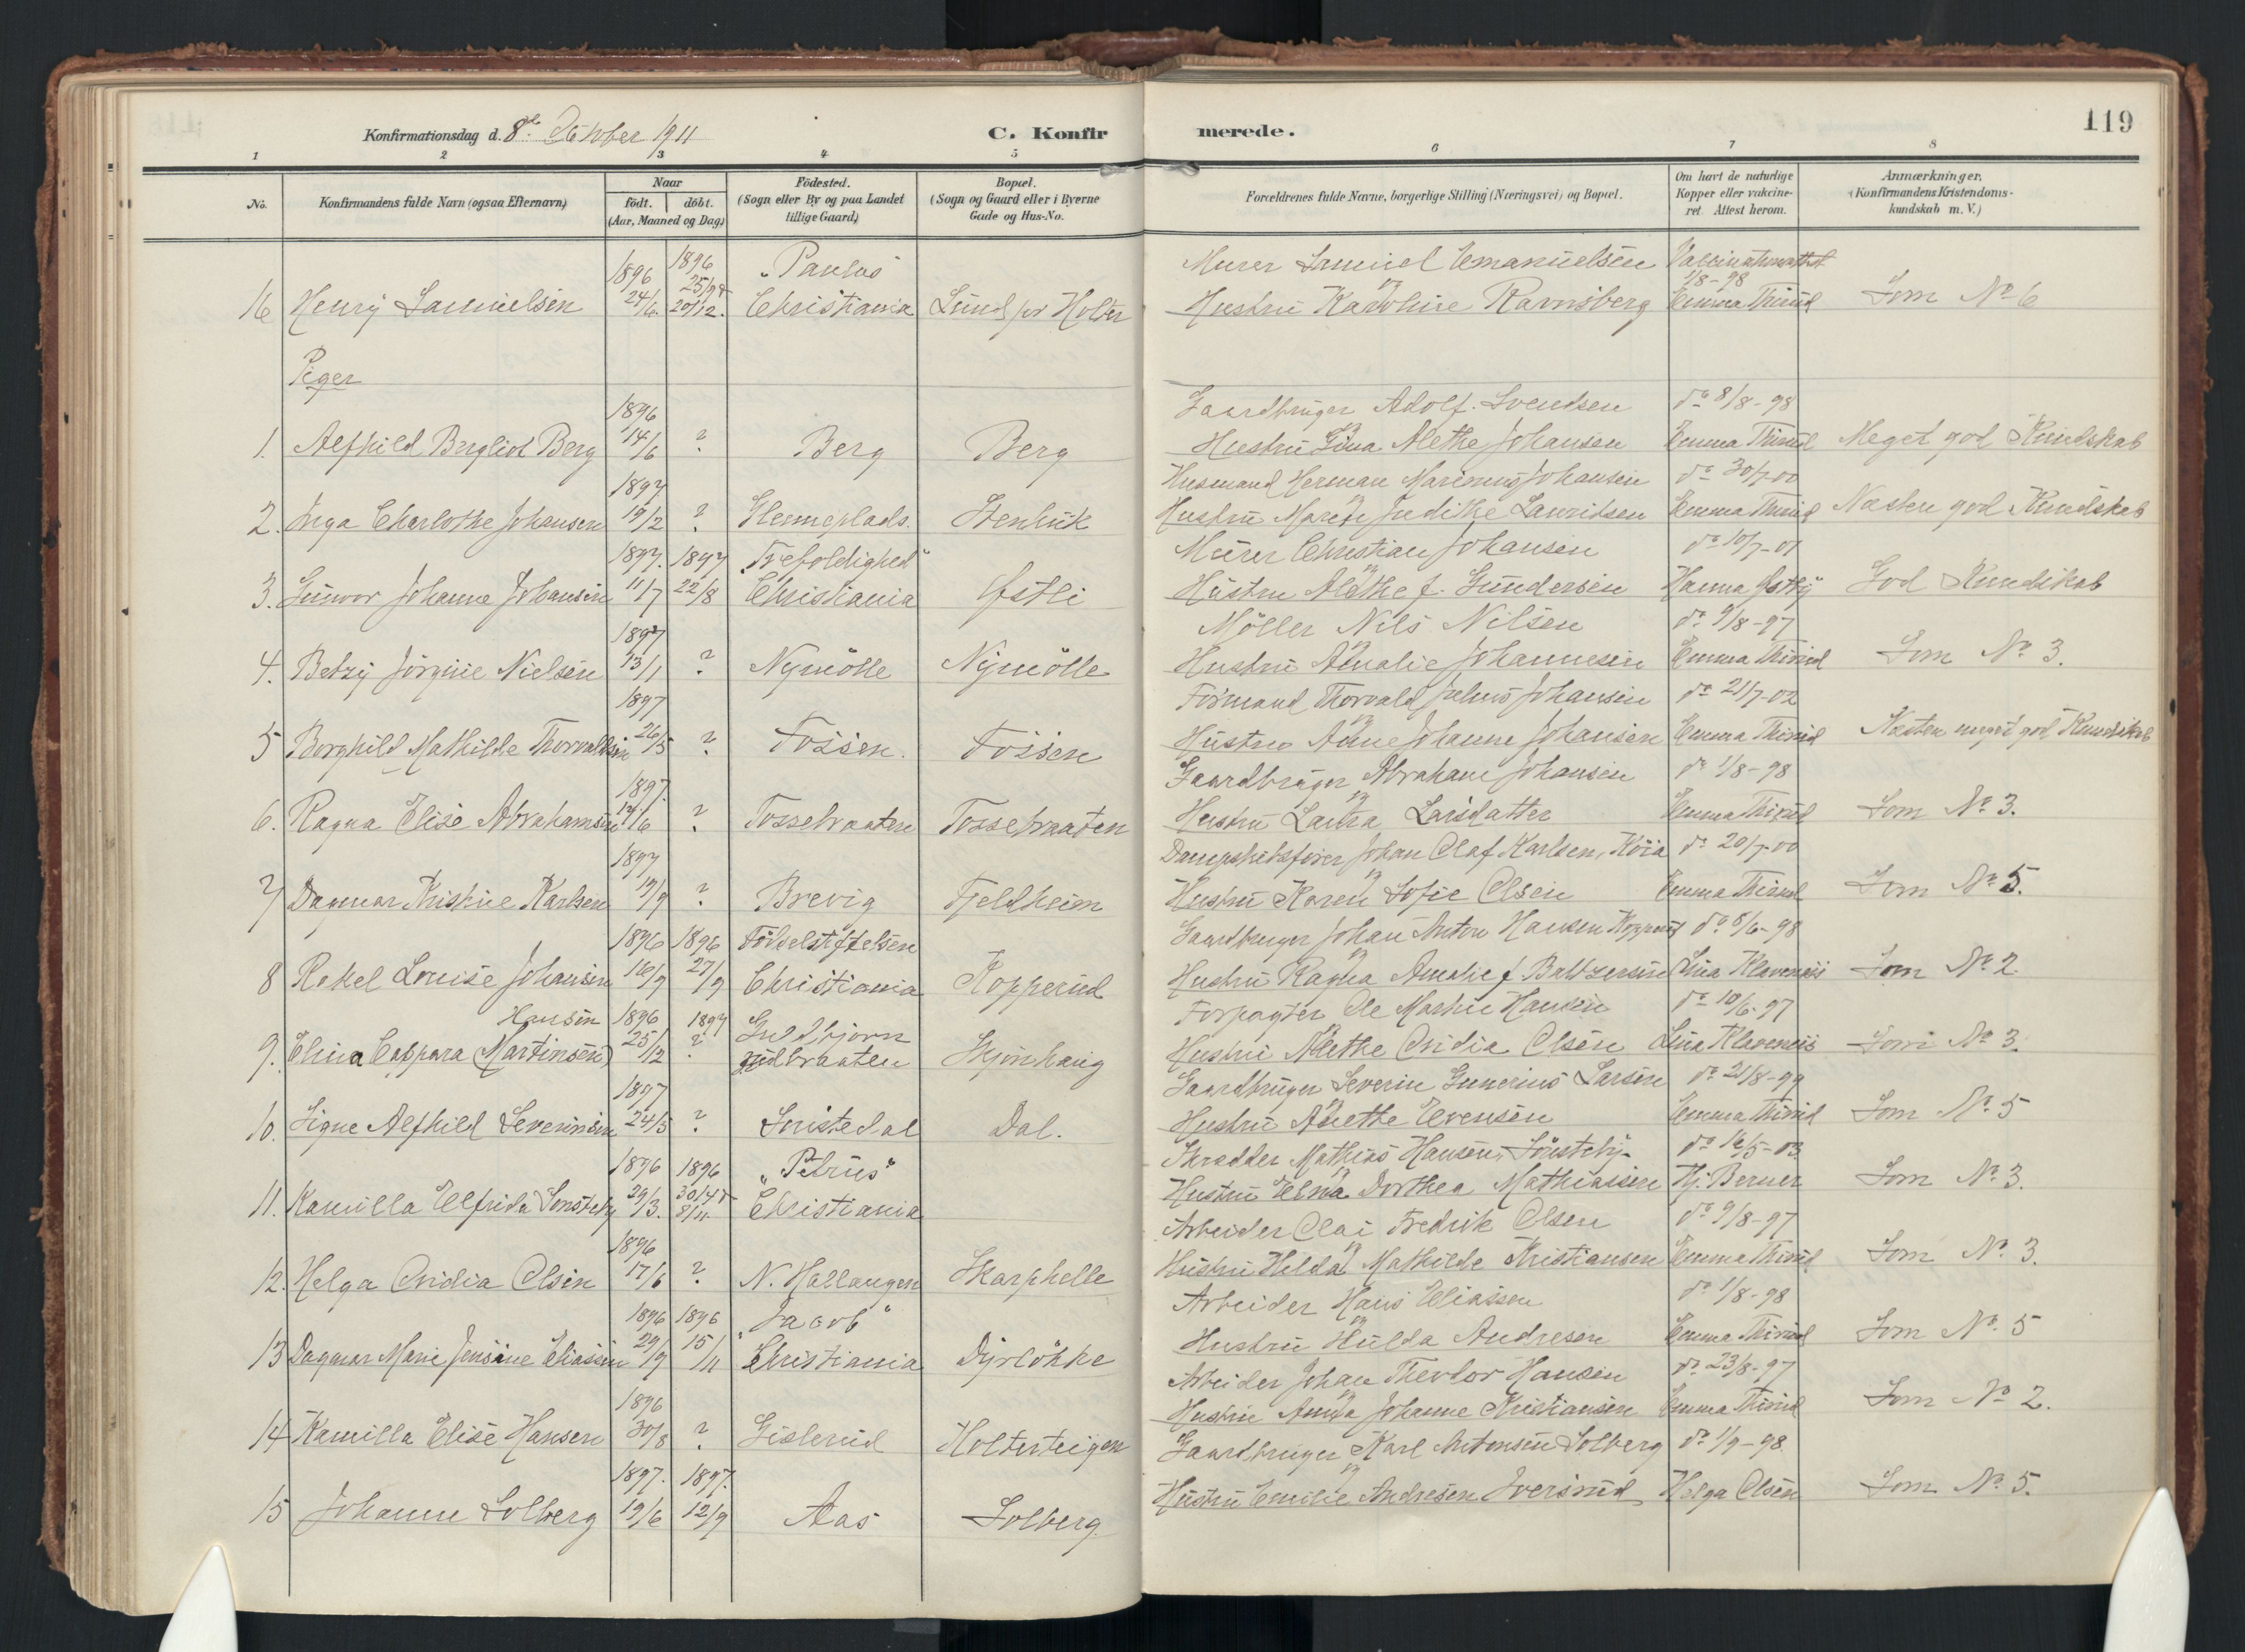 119
Konfirmationsdag d. 8de Oktober 1911 C. Konfirmerede.
1 2 3 4 5 6 7 8
No. Konfirmandens fulde Navn (ogsaa Efternavn) Naar födt. döbt. (Aar, Maaned og Dag) Födested. (Sogn eller By og paa Landet tillige Gaard) Bopæl. (Sogn og Gaard eller i Byerne Gade og Hus-No. Forældrenes fulde Navne, borgerlige Stilling (Næringsvei) og Bopæl. Om havt de naturlige Kopper eller vakcineret. Attest herom. Anmærkninger. (Konfirmandens Kristendomskundskab m. V.)
1896 1896 25/9 "Paulus" Murer Samuel Emanuelsen Vaccinationsattest 1/8-98
16 Henry Samuelsen 24/6. 20/12. Christiania Lund pr Holter Hustru Karoline Ravnsberg Emma Thirud Som No 6
Piger
1896 Gaardbruger Adolf Svendsen do 8/8-98
1. Alfhild Bergliot Berg 14/6 ? Berg Berg Hustru Gina Alethe Johansen Emma Thirud Meget god Kundskab
1897 Husmand Herman Marinius Johansen do 30/7-00
2. Inga Charlothe Johansen 19/2 ? Hemeplads. Stenluk Hustru Marthe Judithe Lauritsen Emma Thirud Næsten god Kundskab
1897. 1897 "Trefoldighed" Murer Christian Johansen do 10/7-01
3. Gunvor Johanne Johansen 11/7 22/8 Christiania Østli Hustru Alethe f. Gundersen Hanna Østby God Kundskab
1897 Møller Nils Nilsen do 9/8-97
4. Betzy Jörgine Nielsen 13/1 ? Nymölle Nymölle Hustru Amalie Johannesen Emma Thirud Som No 3.
1897 Formand Thorvald Julius Johansen do 21/7-02
5 Borghild Mathilde Thorvaldsen 26/5 ? Fossen. Fossen Hustru Anne Johanne Johansen Emma Thirud Næsten meget god Kundskab
1897. Gaardbruger Abraham Johansen do 1/8-98
6. Ragna Elise Abrahamsen 14/6 ? Tossebraaten Tossebraaten Hustru Laura Larsdatter Emma Thirud Som No 3.
1897 Dampskibsfører Johan Olaf Karlsen, Köia do 20/7-00
7 Dagmar Kristine Karlsen 19/9 ? Brevig Fjeldheim Hustru Karen Sofie Olsen Emma Thirud Som No 5.
1896 1896 Födselstiftelsen Gaardbruger Johan Anton Hansen Kopperud do 8/6-98
8 Rakel Louise Johansen 16/9 27/9 Christiania Kopperud Hustru Ragna Amalie f. Baltzersen Lina Klavenæs Som No 2
Hansen 1896 1897 Guldbjørn Forpagter Ole Martin Hansen do 10/6-97
9. Elina Caspara (Martinsen) 25/12 ? rudbraaten Skjønhaug Hustru Alethe Ovidia Olsen Lina Klavenæs Som No 3.
1897 Gaardbruger Severin Gunerius Larsen do 21/8-99
10. Signe Alfhild Severinsen 24/5 ? Smistedal Dal. Hustru Anethe Evensen Emma Thirud Som No 5
1896 1896 "Petrus" Skrædder Mathias Hansen Sönsteby do 16/5-03.
11. Kamilla Elfrida Sönsteby 29/3. 30/4 8/11. Christiania Hustru Elma Dorthea Mathiassen Hj. Berner Som No 3.
1896 Arbeider Olai Fredrik Olsen do 9/8-97
12. Helga Ovidia Olsen 17/6 ? N. Hallangen Skarphelle Hustru Hilda Mathilde Kristiansen Emma Thirud Som No 3.
1896 1896 "Jacob" Arbeider Hans Eliassen do 1/8-98
13 Dagmar Marie Jensine Eliassen 29/9 15/11 Christiania Dyrløkke Hustru Hulda Andresen Emma Thirud Som No 5
1896 Arbeider Johan Theodor Hansen do 23/8-97
14 Kamilla Elise Hansen 30/8 ? Gislerud Holterteigen Hustru Anna Johanne Kristiansen Emma Thirud Som No 2.
1897. 1897. Gaardbruger Karl Antonsen Solberg do 1/9-98.
15 Johanne Solberg 19/6 12/9 Aas Solberg. Hustru Emilie Andresen Iversrud Helga Olsen Som No 5.